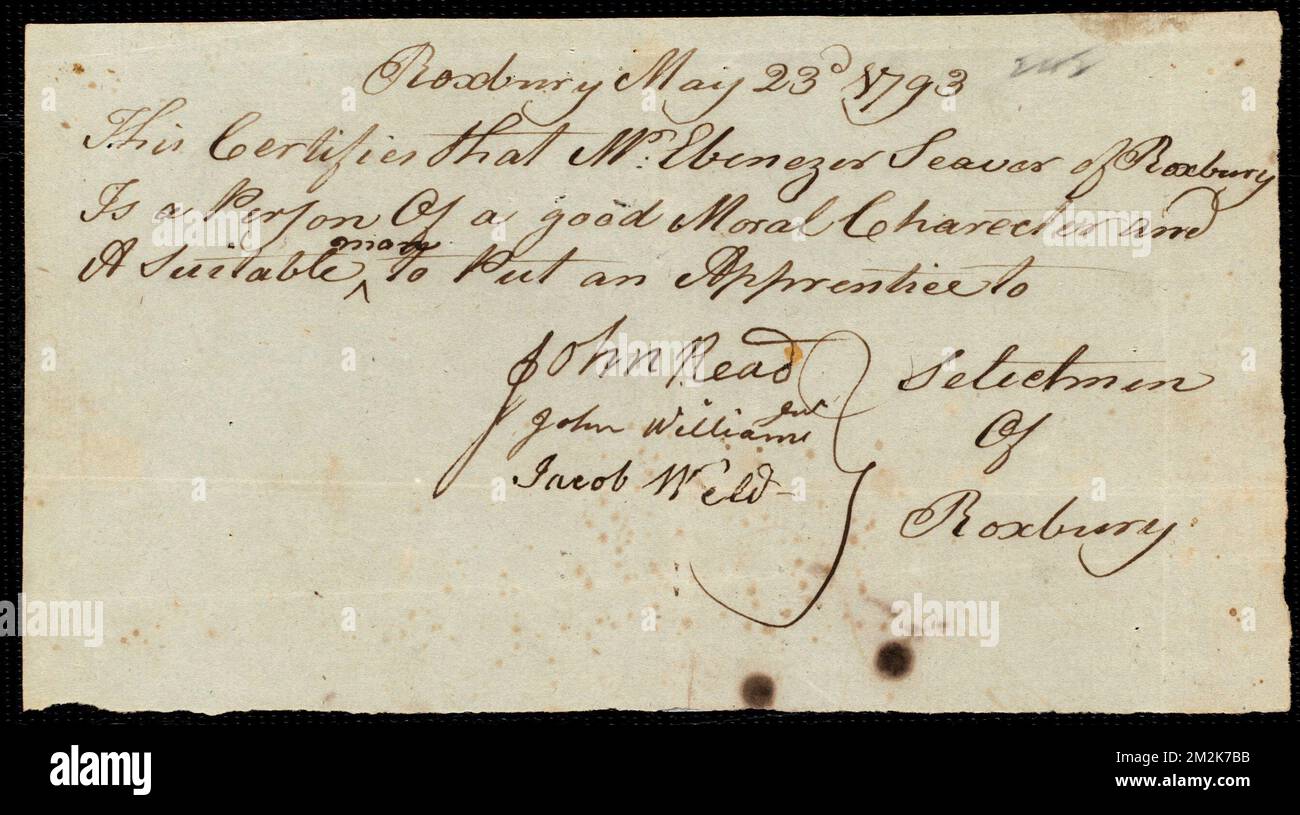 Roxbury May 23d 1793
This Certifies that Mr. Ebenezer Seaver of Roxbury
Is a Person Of a good Moral Charecter and
A Suitable ^man to Put an Apprentice to
John Read
John Williams Jur
Jacob Weld
Selectmen
Of
Roxbury
alamy
Image ID: 2M2K7BB
www.alamy.com